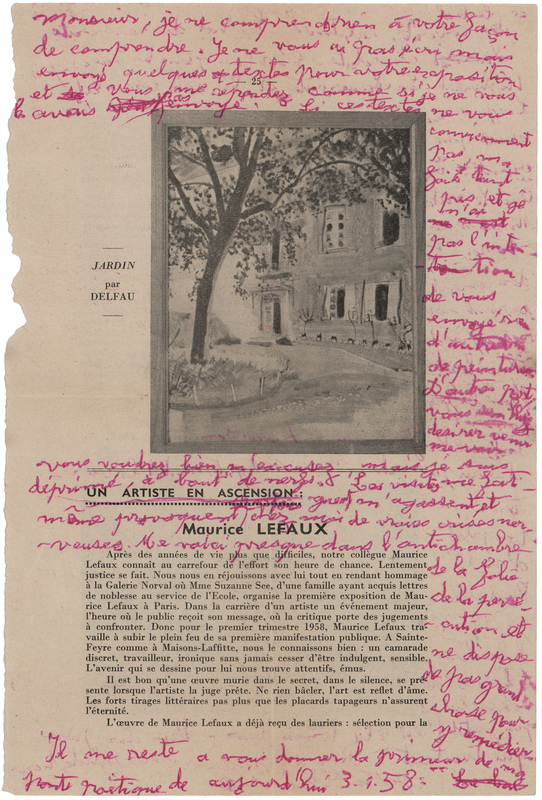 Monsieur, je ne comprends rien à votre façon
de comprendre. Je ne vous ai pas écrit mais
envoyé quelques textes pour votre exposition
25
et vous me répondez comme si je ne vous
le avais pas envoyé. Si ces textes ne vous
conviennent
pas
fait tant
pis et je
n'ai
pas l'inten
tion
de vous
envoyer
d'autres
de peinture
D'autre part
vous
désirez venir
me voir
JARDIN
par
DELFAU
vous voudrez bien m'excuser, mais je suis
déprimé, à bout de nerfs. Les visites me fati-
guent, m'agassent et
même provoquent chez moi de vraies crises ner-
veuses. Me voici presque dans l'antichambre
de la folie
de la persé-
cution et
ne dispose
de pas grand
chose pour
y remédier.
UN ARTISTE EN ASCENSION :
Maurice LEFAUX
Après des années de vie plus que difficiles, notre collègue Maurice
Lefaux connait au carrefour de l'effort son heure de chance. Lentement
justice se fait. Nous nous en réjouissons avec lui tout en rendant hommage
à la Galerie Norval où Mme Suzanne See, d'une famille ayant acquis lettres
de noblesse au service de l'Ecole, organise la première exposition de Mau-
rice Lefaux à Paris. Dans la carrière d'un artiste un événement majeur,
l'heure où le public reçoit son message, où la critique porte des jugements
à confronter. Donc pour le premier trimestre 1958, Maurice Lefaux tra-
vaille à subir le plein feu de sa première manifestation publique. A Sainte-
Feyre comme à Maisons-Laffitte, nous le connaissons bien : un camarade
discret, travailleur, ironique sans jamais cesser d'être indulgent, sensible.
L'avenir qui se dessine pour lui nous trouve attentifs, émus.
Il est bon qu'une œuvre murie dans le secret, dans le silence, se pré
sente lorsque l'artiste la juge prête. Ne rien bâcler, l'art est reflet d'âme.
Les forts tirages littéraires pas plus que les placards tapageurs n'assurent
l'éternité.
L'œuvre de Maurice Lefaux a déjà reçu des lauriers : sélection pour la
Il me reste à vous donner la primeur de ma
ponte poétique de aujourd'hui 3.1.58